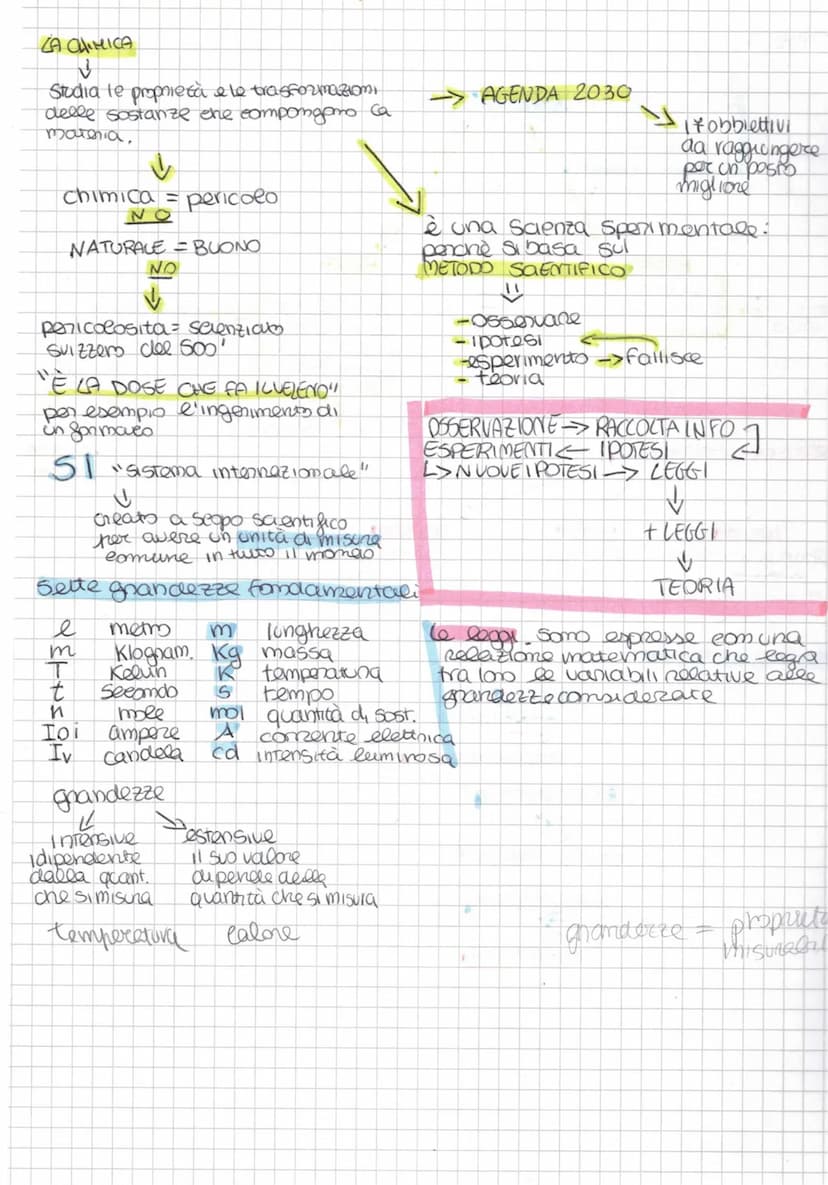 LA CHIMICA
Studia le proprietà e le trasformazioni
delle sostanze che compongono la
materia.
→ AGENDA 2030
17 obbiettivi
da raggiungere
per un posto
migliore
chimica = pericolo
NO
NATURALE = BUONO
NO
è una scienza sperimentale:
perchè si basa sul
METODO SCIENTIFICO
- osservare
- ipotesi
- esperimento → fallisce
- teoria
pericolosità = scienziato
svizzero del 500'
"È LA DOSE CHE FA IL VELENO"
per esempio l'ingerimento di
un farmaco
OSSERVAZIONE → RACCOLTA INFO
ESPERIMENTI ← IPOTESI
↳ NUOVE IPOTESI → LEGGI
+ LEGGI
TEORIA
SI "sistema internazionale"
creato a scopo scientifico
per avere un unità di misura
comune in tutto il mondo
Sette grandezze fondamentali
l metro m lunghezza
m Klogram. Kg massa
T Kelvin K temperatura
t secondo s tempo
n mole mol quantità di sost.
I o i ampere A corrente elettrica
Iv candela cd intensità luminosa
Le leggi sono espresse con una
relazione matematica che lega
tra loro le variabili relative alle
grandezze considerate
grandezze
intensive
idipendente
dalla quant.
che si misura
temperatura
estensive
il suo valore
dipende dalla
quantità che si misura
calore
grandezze =